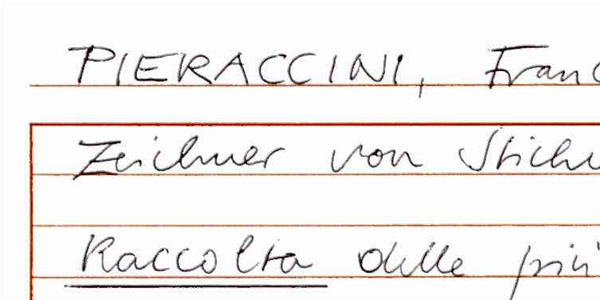 PIERACCINI, Franc
Zeichner von Stich
Raccolta delle più